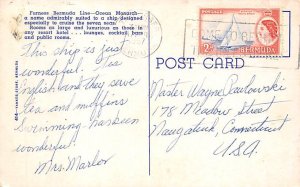 Furness Bermuda Line—Ocean Monarch—
a name admirably suited to a ship designed
especially to cruise the seven seas!
Rooms as large and luxurious as those in
any resort hotel . . . lounges, cocktail bars
and public rooms.
This ship is just
wonderful. Too
english and they serve
tea and muffins
Swimming has been
wonderful!
Mrs. Marlor
POSTAGE
2½D
BERMUDA
POST CARD
Master Wayne Pawlowski
178 Meadow Street
Naugatuck, Connecticut
U.S.A.